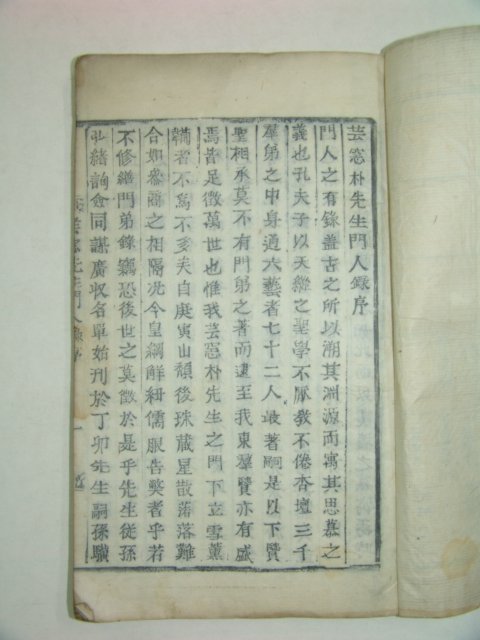 芸窓朴先生門人錄序
門人之有錄蓋古之所以溯其淵源而寓其思慕之
義也孔夫子以天縱之聖學不厭敎不倦杏壇三千
羣弟之中身通六藝者七十二人最著嗣是以下賢
聖相承莫不有門弟之著而逮至我東羣賢亦有盛
焉皆足徵萬世也惟我芸窓朴先生之門下立雪薰
者不爲不多矣夫自庚寅山頹後珠藏星散落落難
合如參商之相隔况今皇綱解紐儒服告弊者乎若
不修繼門弟錄竊恐後世之莫徵於是乎先生從孫
弘緖詢僉同謀廣收名單始刊於丁卯先生嗣孫驥
芸窓先生門人錄序 一